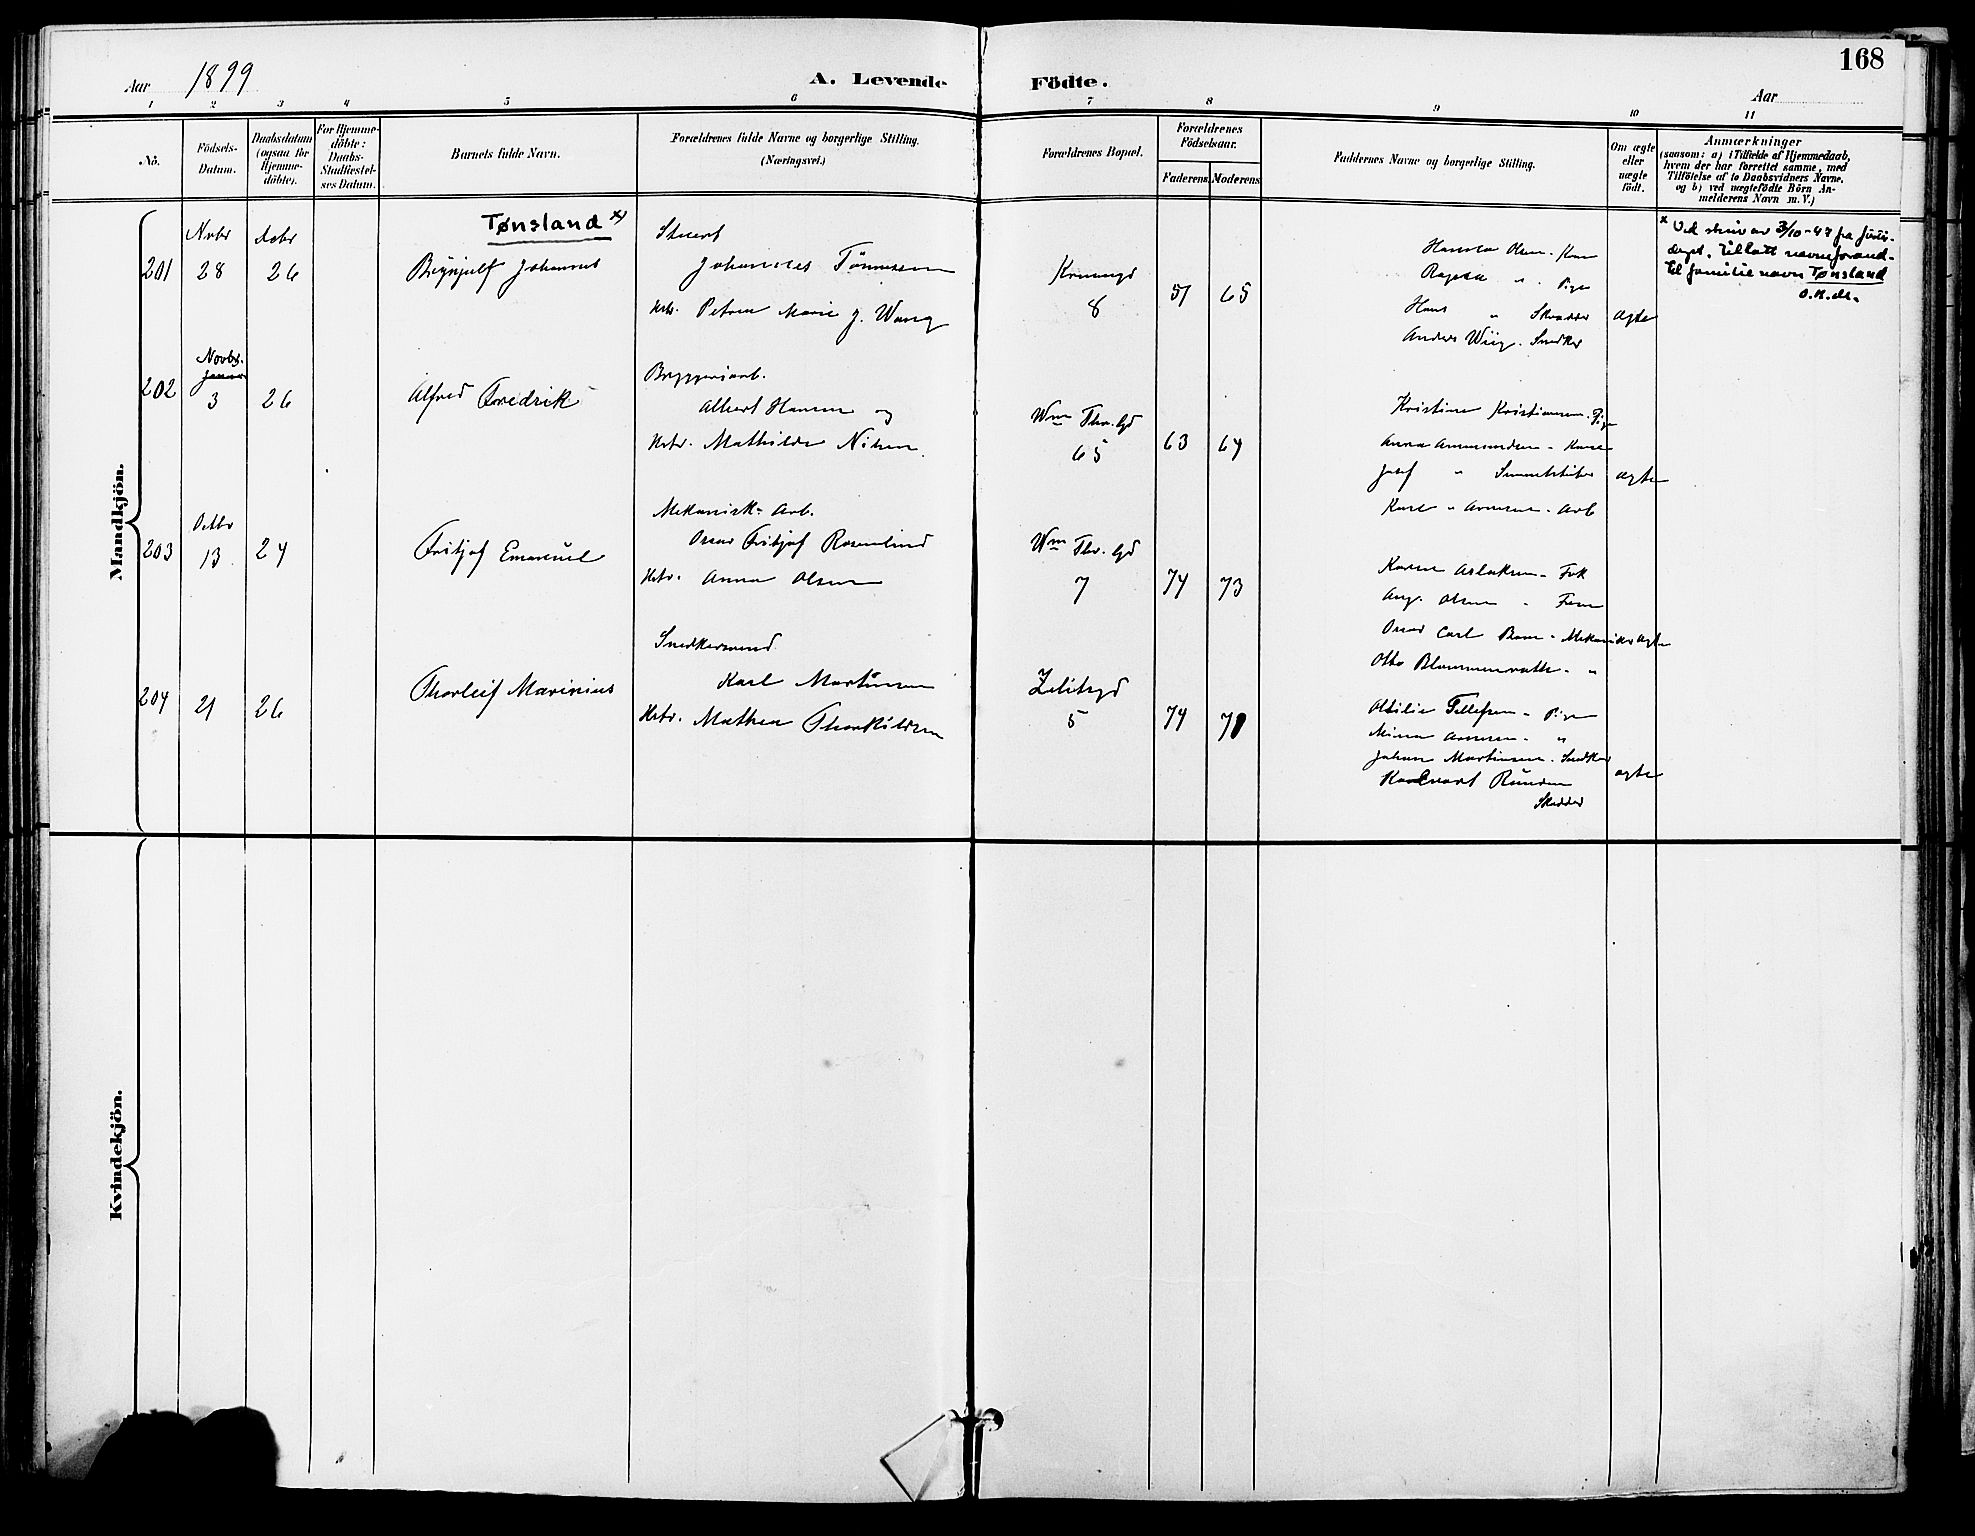 168
Aar 1899
A. Levende Födte.
Aar
1 2 3 4 5 6 7 8 9 10 11
No.
Födsels-
Datum.
Daabsdatum
(ogsaa for
Hjemme-
döbte).
For Hjemme-
döbte:
Daabs-
Stadfæstel-
ses Datum.
Barnets fulde Navn.
Forældrenes fulde Navne og borgerlige Stilling.
(Næringsvei.)
Forældrenes Bopæl.
Forældrenes
Födselsaar.
Faderens. Moderens
Faddernes Navne og borgerlige Stilling.
Om ægte
eller
uægte
födt.
Anmærkninger
(saasom: a) i Tilfælde af Hjemmedaab,
hvem der har forrettet samme, med
Tilföielse af to Daabsvidners Navne,
og b) ved uægtefödte Börn An-
melderens Navn m. V.)
Mandkjön.
201
Novbr
28
Debr
26
Tønsland x)
Brynjulf Johannes
Stuert
Johannes Tönnessen
Hstr. Petrea Marie J. Wang
8
51
65
Olsen
Ragna " Pige
Hans "
Anders Wiig. Snedker
ægte
x Ved skriv av 3/10-47 fra Justi-
dept. tillatt navneforand-
til familienavn Tønsland
202
Novbr.
3
26
Alfred Fredrik
Bryggeriarb.
Albert Hansen og
Hstr. Mathilde Nilsen.
Wm Thr. Gd
65
63
64
Kristine Kristiansen. Pige
Anna Amundsen - Kone
Josef "
Karl " Arnesen - Arb
ægte
203
Octbr
13
24
Fritjof Emanuel
Mekanisk-Arb.
Oscar Fritjof Rosenlind
Hstr. Anna Olsen
Wm Thr. Gd
7
74
73
Karen Aslaksen - Frk
Aug. Olsen -
Oscar Carl
Otto Blommenrath - "
ægte
204
21
26
Thorleif Marinius
Snedkersvend
Karl Martinsen
Hstr. Mathea Thorkildsen
5
74
71
Othilie Tellefsen - Pige
Mina Arnesen - "
Johan Martinsen. Snedker
ægte
Kvindekjön.